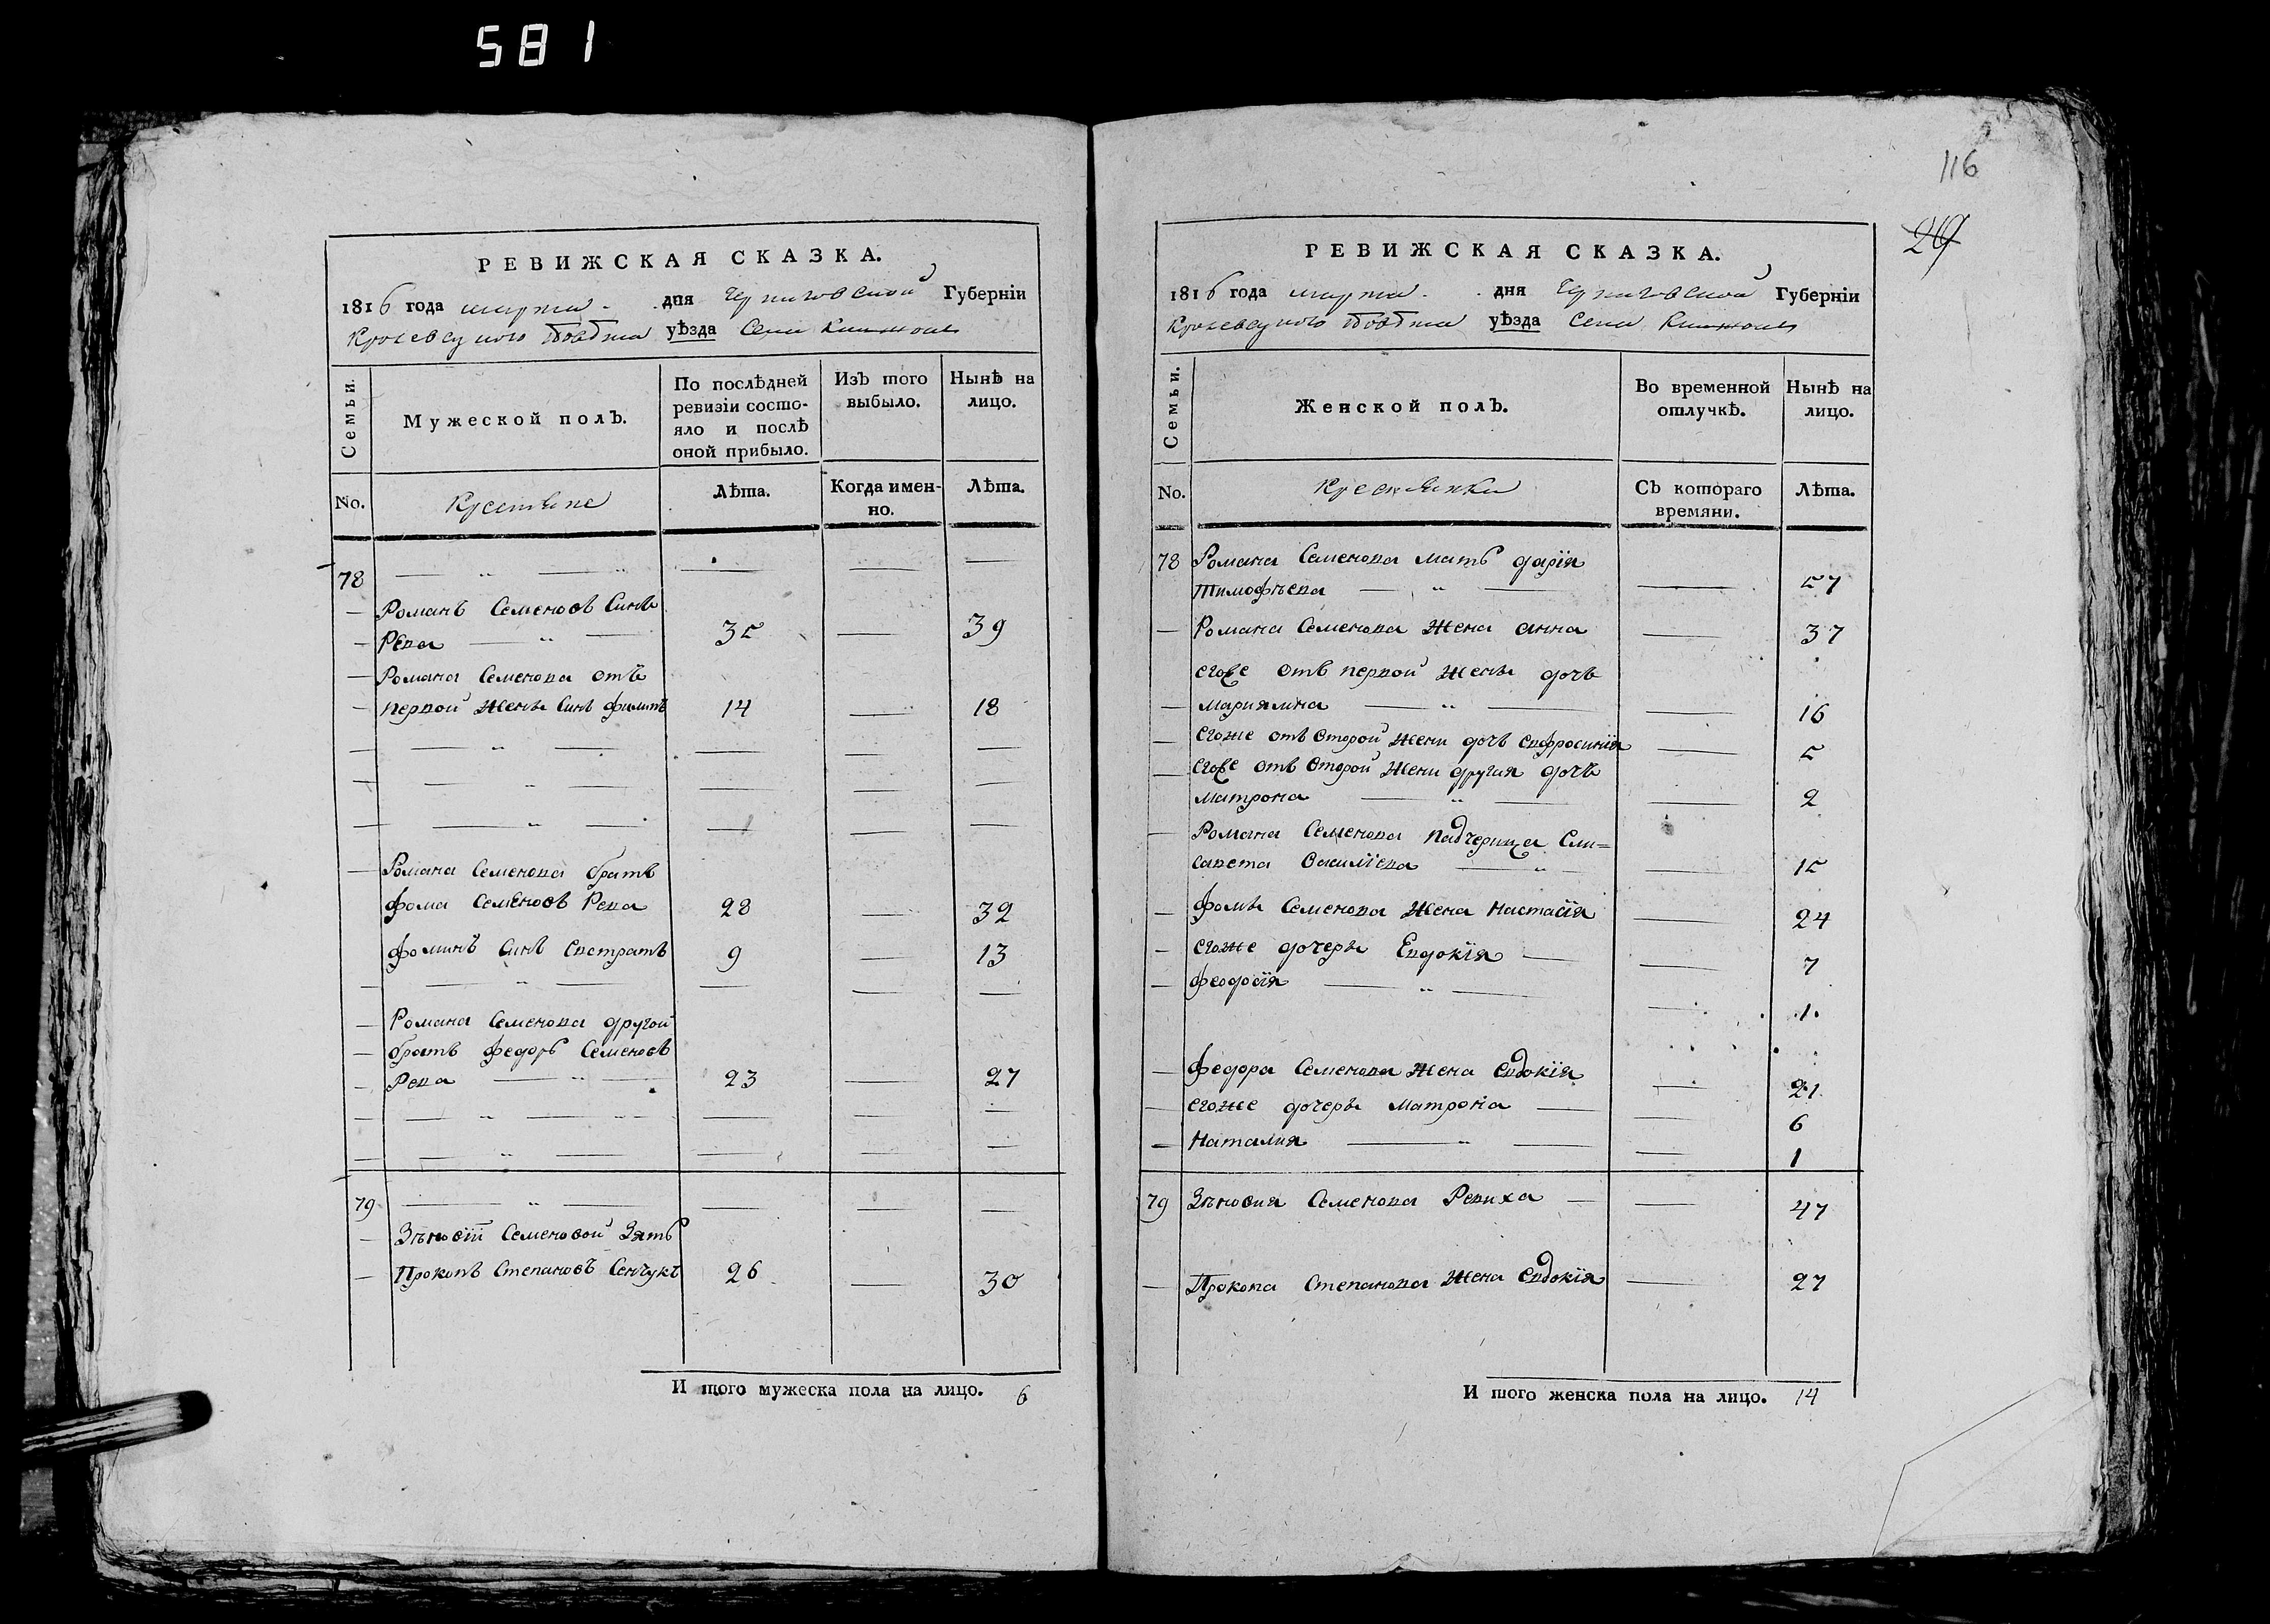 581
116
29
РЕВИЖСКАЯ СКАЗКА.
1816 года марта дня Черниговской Губерніи
Кролевецкого Повѣта уѣзда Села
Семьи.
Мужеской полъ.
По послѣдней ревизіи состояло и послѣ оной прибыло.
Изъ того выбыло.
Нынѣ на лицо.
No.
Крестьяне
Лѣта.
Когда именно.
Лѣта.
78
Романъ Семеновъ Синъ
Рева 35 39
Романа Семенова отъ
первой жены Синъ филипъ 14 18
Романа Семенова братъ
фома Семеновъ Рева 28 32
фоминъ Синъ Евстратъ 9 13
Романа Семенова другой
братъ федоръ Семеновъ
Рева 23 27
79
Зѣновіи Семеновой Зять
Прокопъ Степановъ Сенчукъ 26 30
И того мужеска пола на лицо. 6
РЕВИЖСКАЯ СКАЗКА.
1816 года марта дня Черниговской Губерніи
Кролевецкого Повѣта уѣзда Села
Семьи.
Женской полъ.
Во временной отлучкѣ.
Нынѣ на лицо.
No.
Крестьянки
Съ котораго времяни.
Лѣта.
78 Романа Семенова мать дарія
Тимофѣева 57
Романа Семенова жена анна 37
егоже отъ первой жены дочь
Мариямна 16
егоже отъ второй жени дочь евфросинія 5
егоже отъ второй жени другия дочь
матрона 2
Романа Семенова падчерица Ели=
савета Василіева 15
фомы Семенова жена настасія 24
егоже дочеры Евдокія 7
феодосія 1
федора Семенова жена евдокія 21
егоже дочеры матрона 6
наталия 1
79 Зѣновия Семенова Ревиха 47
Прокопа Степанова жена евдокія 27
И того женска пола на лицо. 14